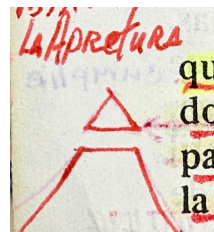 La Apretura
qu
do
pa
la